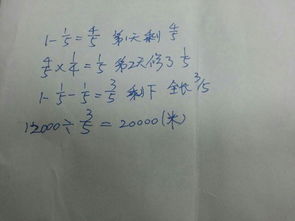 1-1/5=4/5 第1天剩 4/5
4/5×1/4=1/5 第2天修了 1/5
1-1/5-1/5=3/5 剩下 全长3/5
12000÷3/5=20000(米)